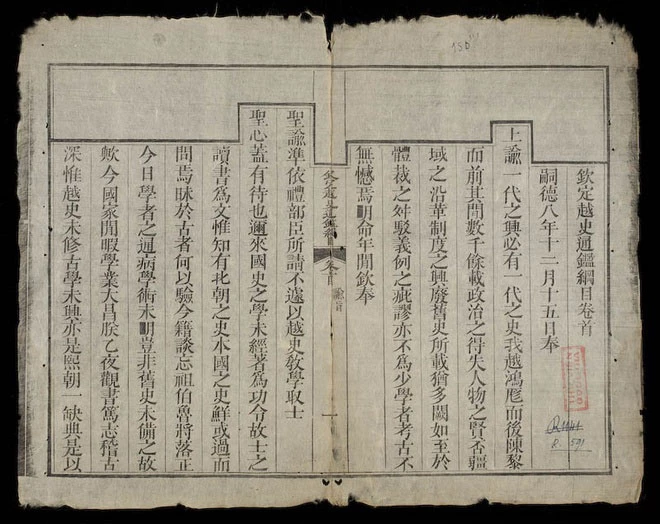 欽定越史通鑑綱目卷首
嗣德八年十二月十五日奉
上諭一代之興必有一代之史我越鴻厖而後陳黎
而前其間數千餘載政治之得失人物之賢否疆
域之沿革制度之興廢舊史所載猶多闕如至於
體裁之舛駁義例之疵謬亦不為少學者考古不
無憾焉明命年間欽奉
卷首
一
聖諭準依禮部臣所請不遽以越史敎學取士
聖心蓋有待也邇來國史之學未經著為功令故士之
讀書為文惟知有北朝之史本國之史鮮或過而
問焉昧於古者何以驗今籍談忘祖伯魯將落正
今日學者之通病學術未明豈非舊史未備之故
歟今國家閒暇學業大昌朕乙夜觀書篤志稽古
深惟越史未修古學未興亦是熙朝一缺典是以